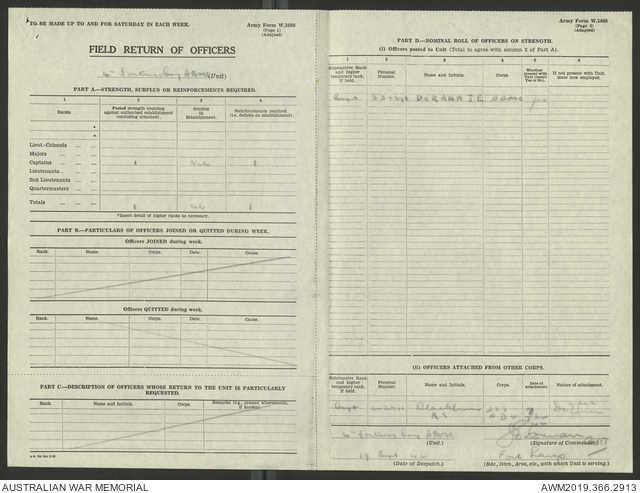 TO BE MADE UP TO AND FOR SATURDAY IN EACH WEEK.
Army Form W.3008
(Page 1)
(Adapted)
FIELD RETURN OF OFFICERS
(Unit)
PART A.—STRENGTH, SURPLUS OR REINFORCEMENTS REQUIRED.
1 2 3 4
Ranks. Posted strength counting against authorised establishment (excluding attached). Surplus to Establishment. Reinforcements required (i.e. deficits on establishment).
*
*
Lieut.-Colonels
Majors
Captains
Lieutenants
2nd Lieutenants
Quartermasters
Totals
*Insert detail of higher ranks as necessary.
PART B.—PARTICULARS OF OFFICERS JOINED OR QUITTED DURING WEEK.
Officers JOINED during week.
Rank. Name. Corps. Date. Cause.
Officers QUITTED during week.
Rank. Name. Corps. Date. Cause.
PART C.—DESCRIPTION OF OFFICERS WHOSE RETURN TO THE UNIT IS PARTICULARLY REQUESTED.
Rank. Name and Initials. Corps. Remarks (e.g., present whereabouts, if known).
Army Form W.3008
(Adapted)
PART D.—NOMINAL ROLL OF OFFICERS ON STRENGTH.
(I) Officers posted to Unit (Total to agree with column 2 of Part A).
1 2 3 4 5 6
Substantive Rank and higher temporary rank, if held. Personal Number. Name and Initials. Corps. Whether present with Unit (insert Yes or No). If not present with Unit, state how employed.
(II) OFFICERS ATTACHED FROM OTHER CORPS.
Substantive Rank and higher temporary rank, if held. Personal Number. Name and Initials. Corps. Date of Attachment. Nature of attachment.
Capt Blackburn
(Unit.) (Signature of Commander.)
19 Sept 42
(Date of Despatch.) (Bde., Divn., Area, etc., with which Unit is serving.)
AUSTRALIAN WAR MEMORIAL AWM2019.366.2913